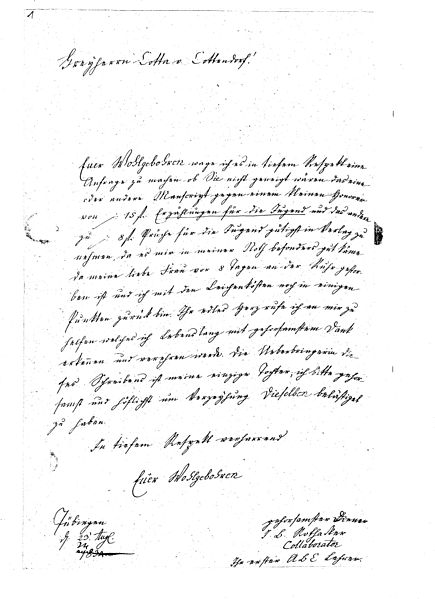 1
Freyherrn Cotta v. Cottendorf!
Euer Wohlgebohren wage ich es in tiefem Respekt eine
Anfrage zu machen ob Sie nicht geneigt wären das eine
oder andere Manscript gegen einem kleinen Honorar
von /: 15 f. Erzählungen für die Jugend und das andere
zu /: 8 f. Sprüche für die Jugend gütigst in Verlag zu
nehmen da es mir in meiner Noth besonders gut käme
da meine liebe Frau vor 8 Tagen an der Ruhr gestor-
ben ist und ich mit den Leichenkösten noch in einigen
Punkten zurük bin. Ihr edles Herz rufe ich an mir zu
helfen welches ich Lebenslang mit gehorsamstem Dank
erkennen und verehren werde. Die Ueberbringerin die-
ses Schreibens ist meine einzige Tochter, ich bitte gehor-
samst und höflichst um Verzeyhung Dieselben belästiget
zu haben.
In tiefem Respekt verharrend
Euer Wohlgebohren
Tübingen
d. 23 Aug.
1834
gehorsamster Diener
Collaborator
Ihr erster ABC Lehrer.